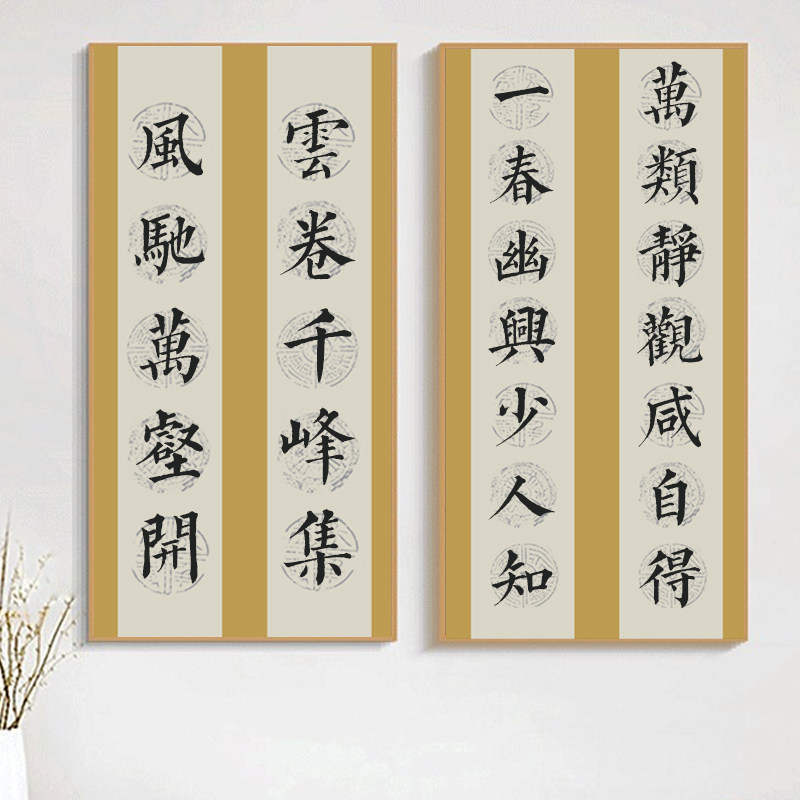 雲卷千峰集
風馳萬壑開
萬類靜觀咸自得
一春幽興少人知